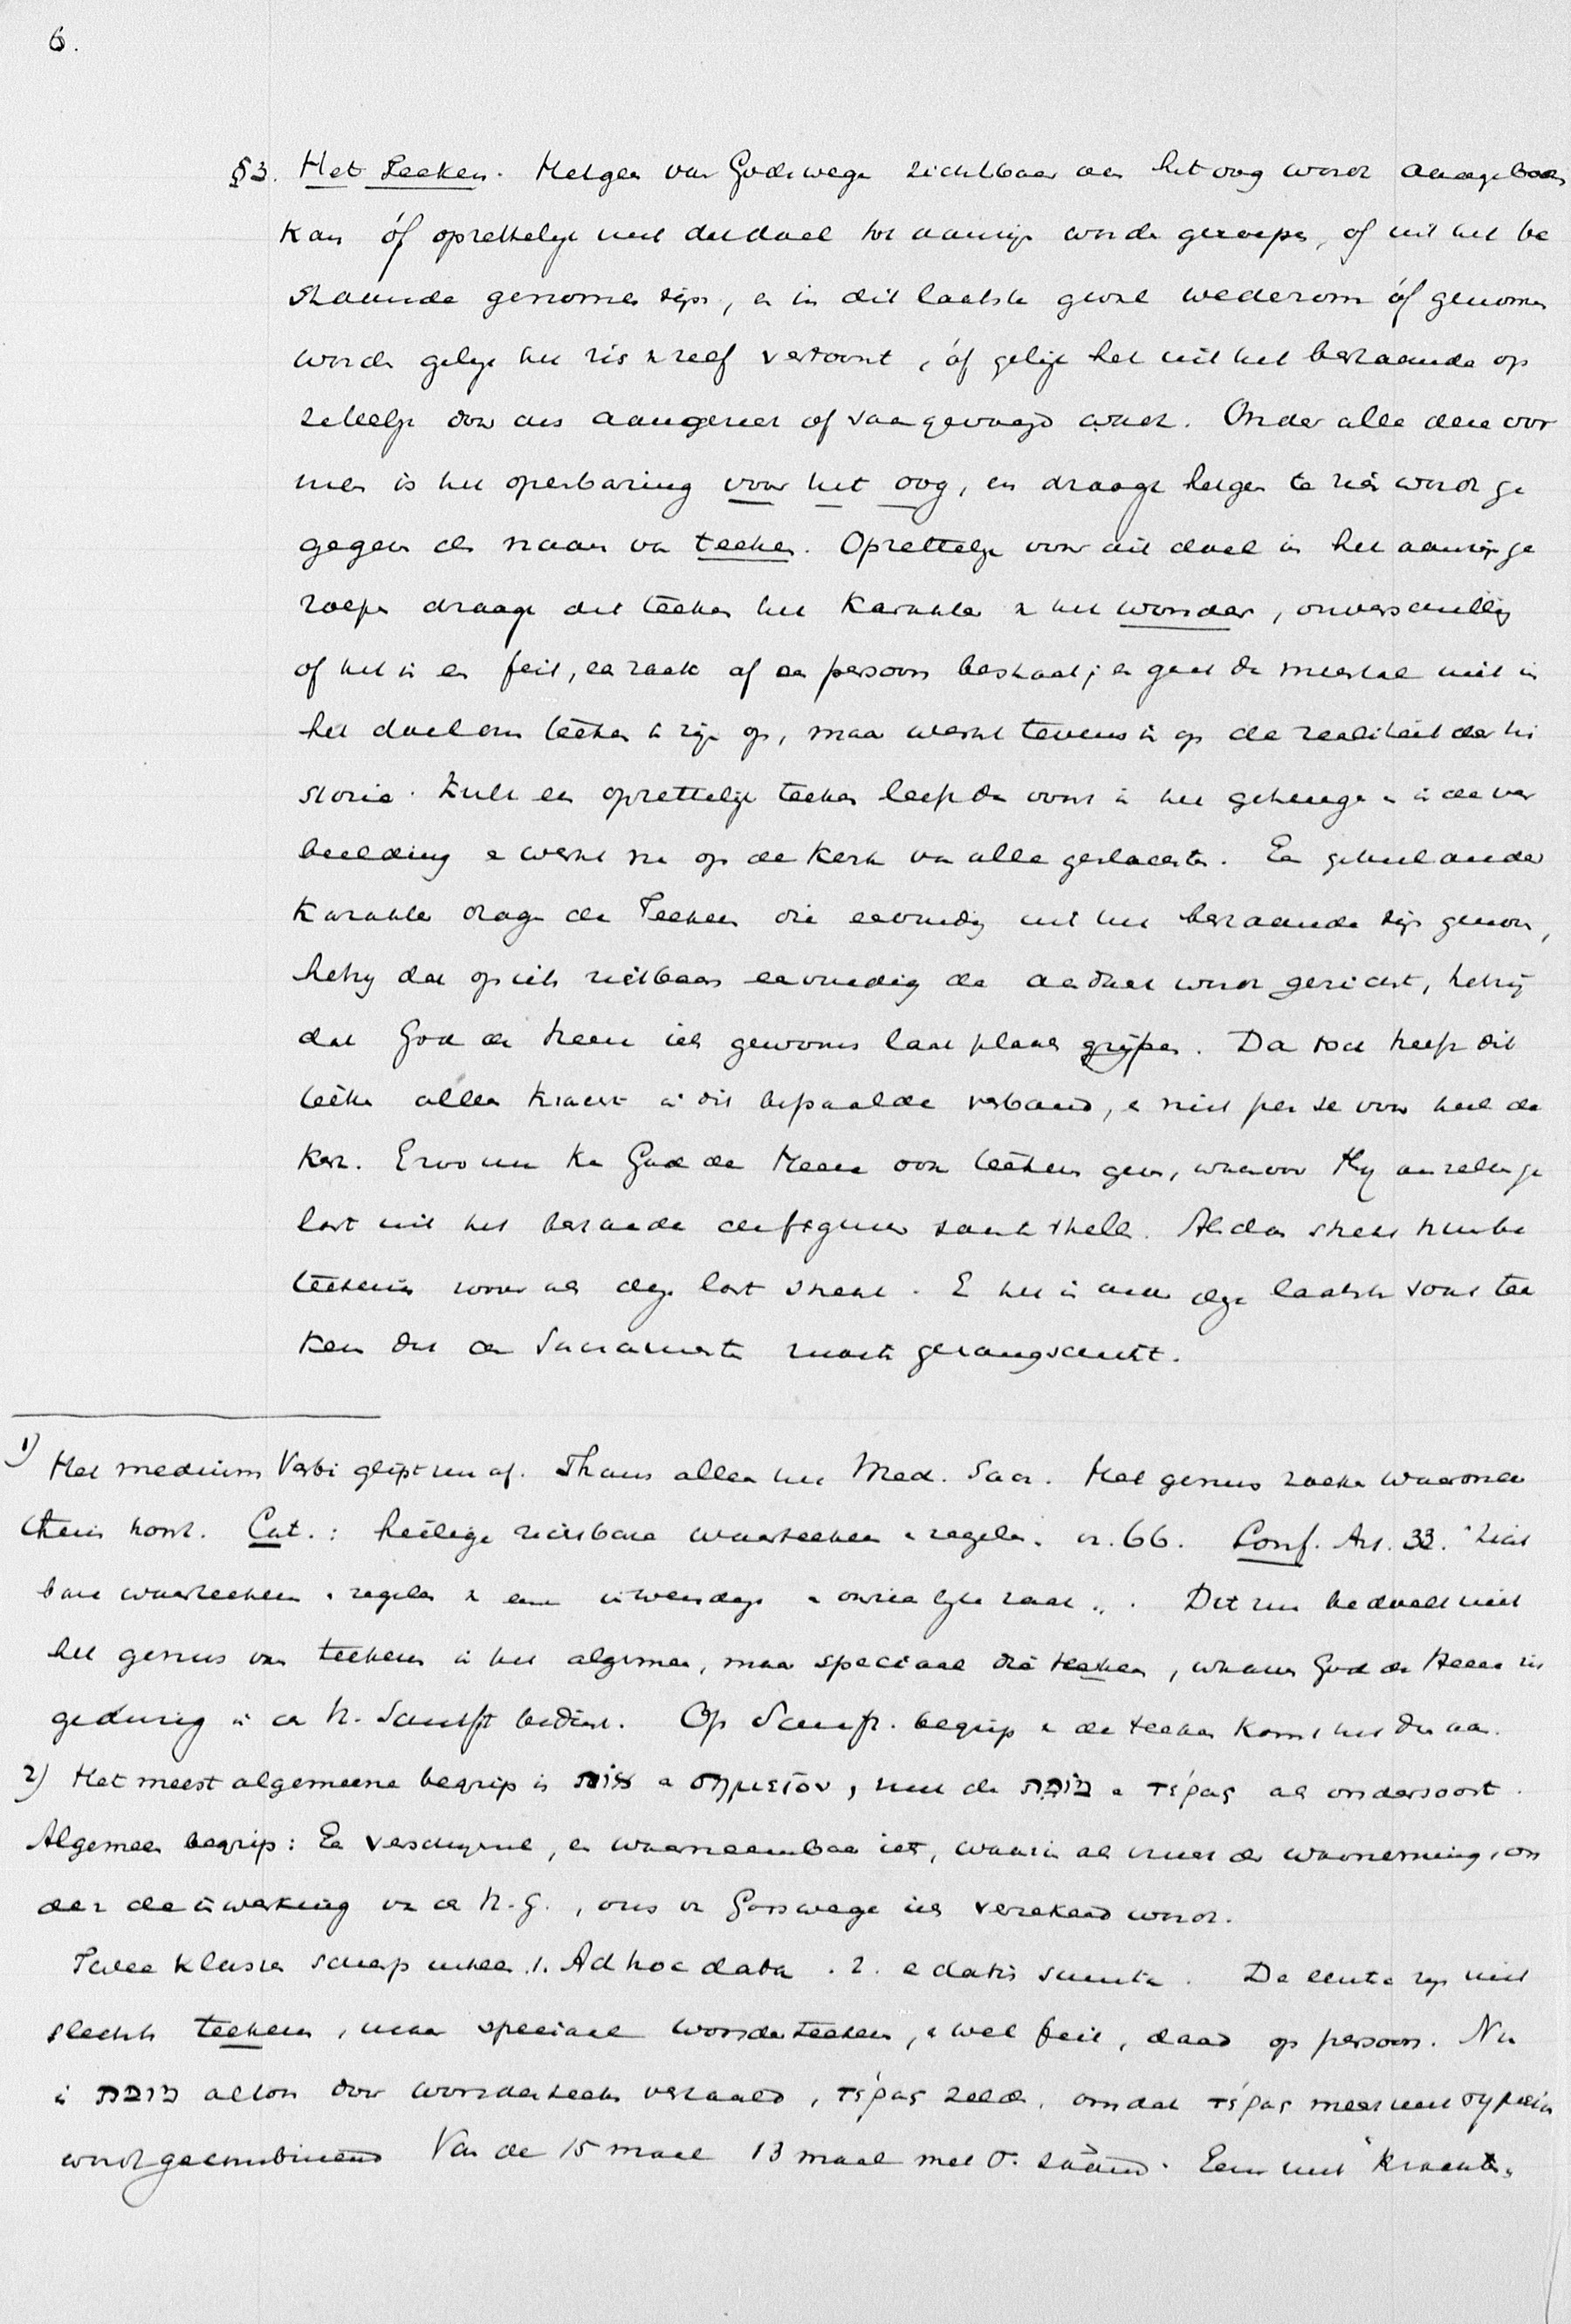 6.
§3. Het Teeken. Hetgeen van Godswege zichtbaar aan het oog wordt aangeboden
kan óf opzettelijk met dat doel tot aanzijn worden geroepen, of uit het be
staande genomen zijn, en in dit laatste geval wederom óf genomen
worden gelijk het zich zelf vertoont, óf gelijk het uit het bestaande op
zettelijk door ons aangeneer of saamgevoegd wordt. Onder alle deze vor
men is het openbaring voor het oog, en draagt hetgeen te zien wordt ge
gegeven den naam van teeken. Opzettelijk voor dit doel in het aanzijn ge
roepen draagt dit teeken het karakter van het wonder, onverschillig
of het in een feit, een zaak of een persoon bestaat; en gaat dan meestal niet in
het doel om teeken te zijn op, maar werkt tevens in op de realiteit der hi
storie. Zulk een opzettelijk teeken leeft dan voort in het geheugen en in de ver
beelding en werkt na op de kerk van alle geslachten. Een geheel ander
karakter dragen de Teekenen die eenvoudig uit het bestaande zijn genomen,
hetzij dat op iets zichtbaars eenvoudig de aandacht wordt gericht, hetzij
dat God de Heere iets gewoons laat plaats grijpen. Dan toch heeft dit
teeken alleen kracht in dit bepaalde verband, en niet per se voor heel de
kerk. Evenwel kan God de Heere ook teekenen geven, waarvoor Hij aanzelen ge
last uit het bestaande de figuur saam te stellen. Alsdan strekt hun be
teekenis zoover als deze last strekt. En het is onder deze laatste soort tee
ken dat de Sacramenten moeten gerangschikt.
1) Het medium Verbi glipt nu af. Thans alleen het Med. Sacr. Het genus zoeken waaronder
thuis hoort. Cat.: heilige zichtbare waarteekenen en zegelen. vr. 66. Conf. Art. 33. "Zicht
bare waarteekenen en zegelen van een inwendige en onzienlijke zaak". Dit nu bedoelt niet
het genus van teekenen in het algemeen, maar speciaal die teekenen, waarvan God de Heere zich
gedurig in de H. Schrift bedient. Op Schrift. begrip van de teeken komt het dus aan.
2) Het meest algemeene begrip is אות en σημεῖον, met de מופת en τέρας als ondersoort.
Algemeen begrip: Een verschijnsel, een waarneembaar iets, waarin als vrucht der waarneming, on
der de inwerking van de H.G., ons van Godswege iets verzekerd wordt.
Twee klassen scherp uiteen. 1. Ad hoc data. 2. e datis sumta. De eerste zijn niet
slechts teekenen, maar speciaal wonderteekenen, en wel feit, daad of persoon. Nu
is מופת altoos door wonderteeken vertaald, τέρας zelden, omdat τέρας meest met σημεῖον
wordt gecombineerd. Van de 15 maal 13 maal met σ. saam. Eens met "krachten"